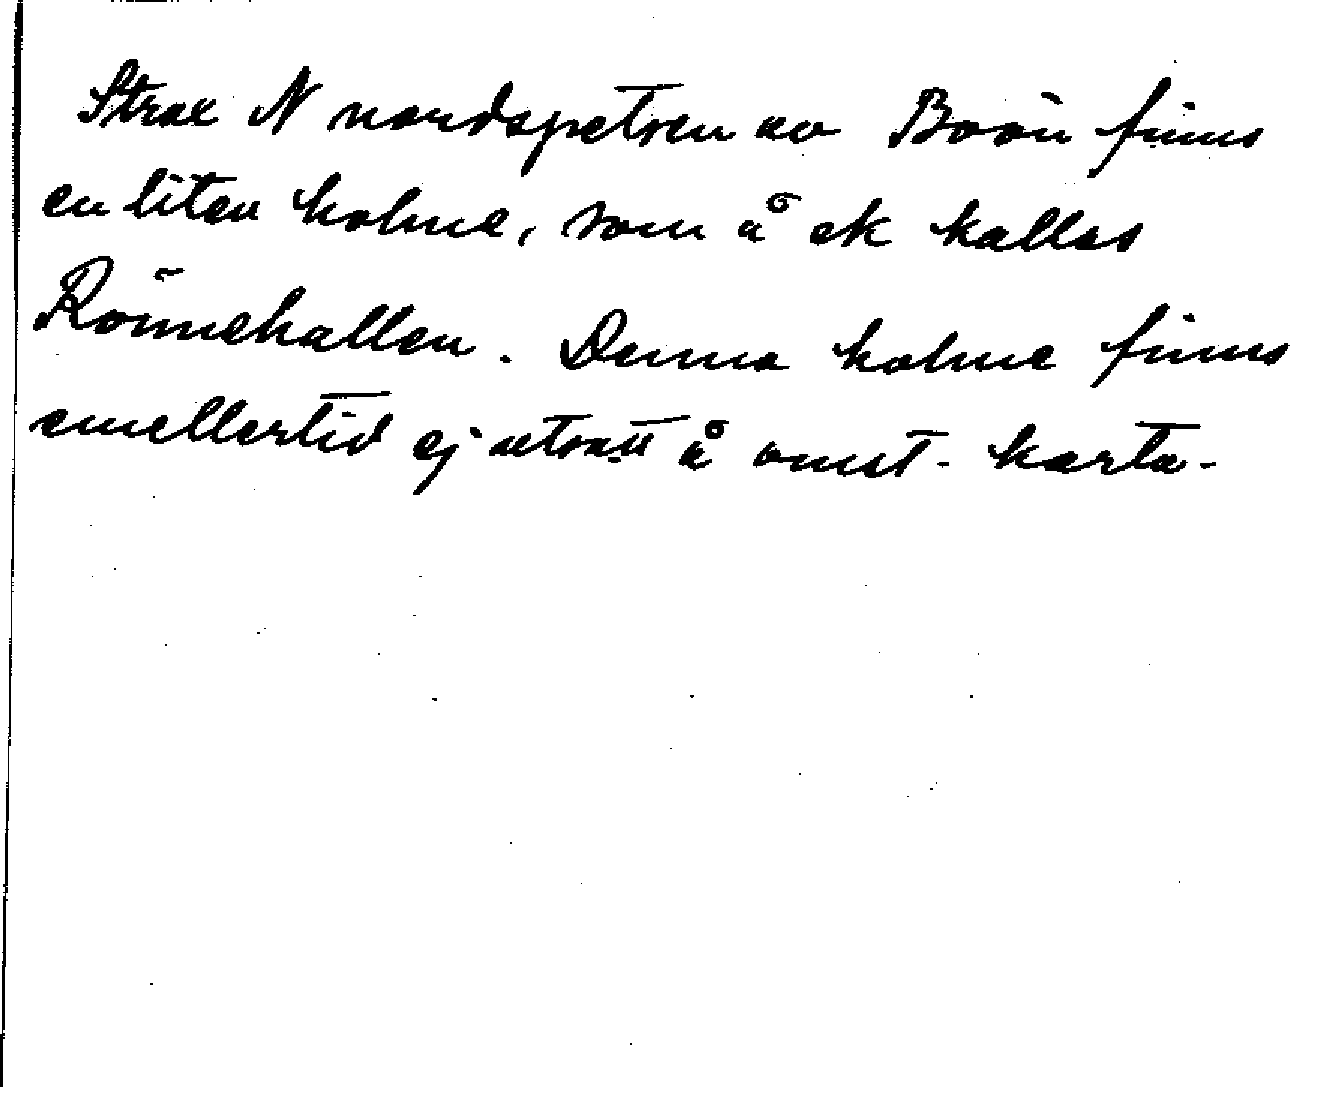 Strax N nordspetsen av Boön finns
en liten holme, som å ek kallas
Rönnehallen. Denna holme finns
emellertid ej utsatt å omst. karta.